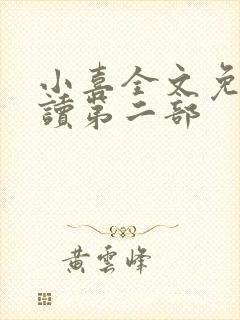 小喜全文免
讀第二部
黃雲峰